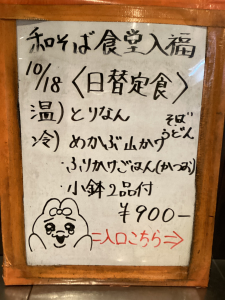 和そば食堂入福
10/18〈日替定食〉
温)とりなん
そば
うどん
冷)めかぶ山かけ
・ふりかけごはん(かつお)
・小鉢2品付
¥900-
=入口こちら⇒